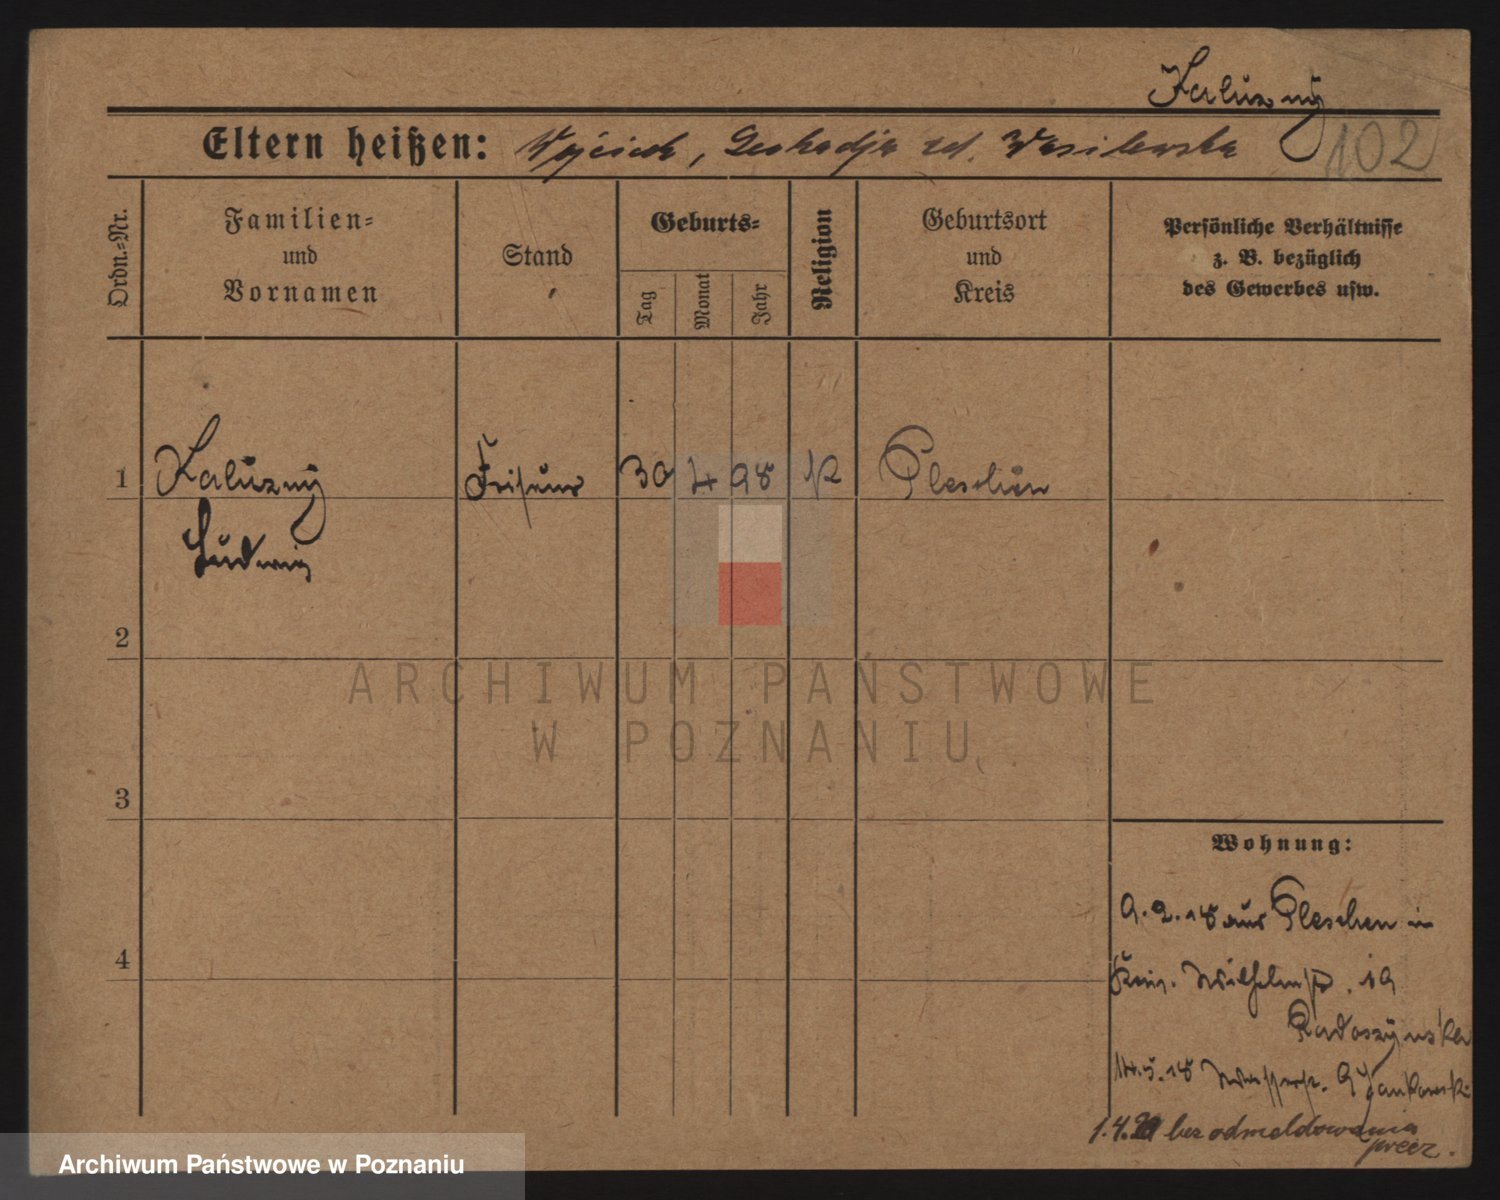 Kaluzny
102
Eltern heißen: Wojciech, Leokadja zd. Wasilewska
Ordn.-Nr.
Familien-
und
Vornamen
Stand
Geburts-
Tag
Monat
Jahr
Religion
Geburtsort
und
Kreis
Persönliche Verhältnisse
z. B. bezüglich
des Gewerbes usw.
1 Kaluzny Friseur 30 4 98 K Pleschen
Ludwig
2
3
4
Wohnung:
9.2.18 aus Pleschen in
Wilhelmstr. 19
Radoszynska
14.5.18 Wasserstr. 9 Jankowski
1.4. bez odmeldowania
precz.
ARCHIWUM PAŃSTWOWE
W POZNANIU
Archiwum Państwowe w Poznaniu